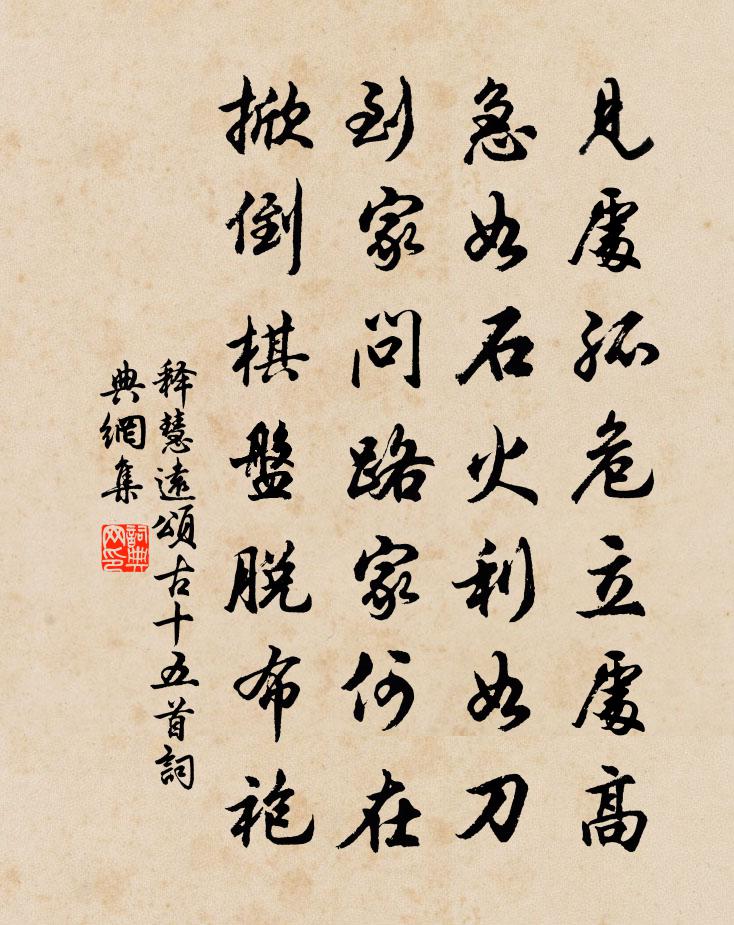 見處孤危立處高
急如石火利如刀
到家問路家何在
掀倒棋盤脫布袍
释慧遠頌古十五首詞
典網集
詞典
网印